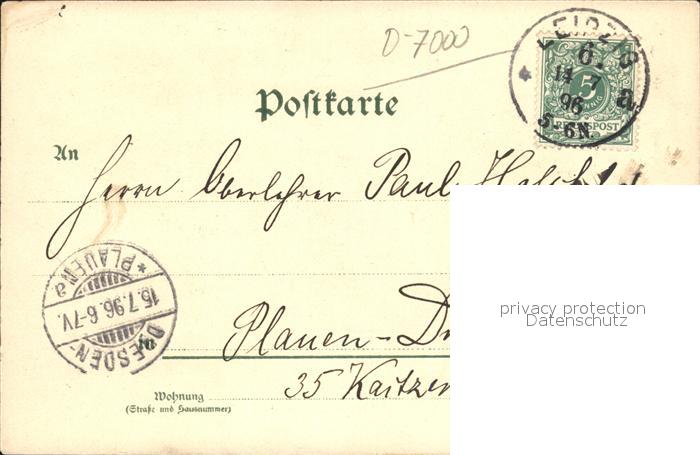 D-7000
LEIPZIG
6.
14 7
96
a.
5-6N.
5
PFENNIG
REICHSPOST
Postkarte
An
Herrn Oberlehrer Paul
PLAUEN
a
15.7.96.6-7V.
DRESDEN-
in
Plauen-
35 Kaitzer
Wohnung
(Straße und Hausnummer)
privacy protection
Datenschutz